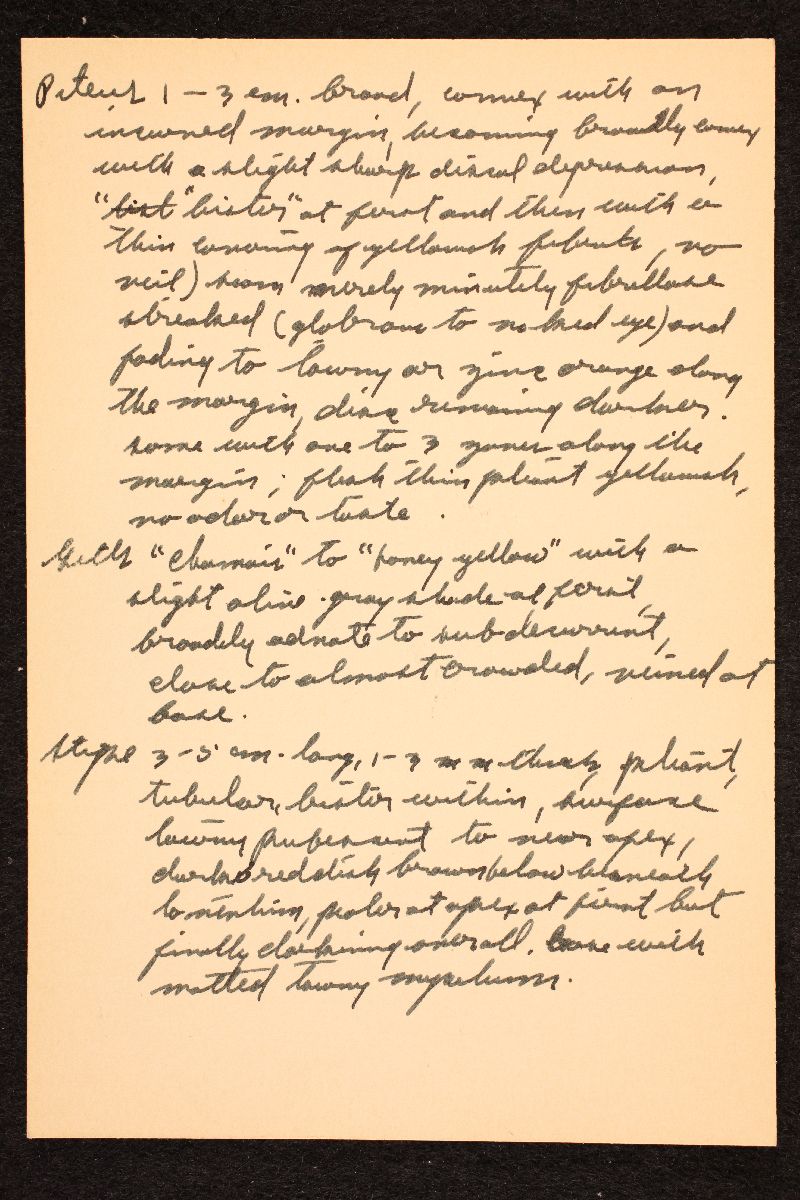 Pileus 1 – 3 cm. broad, convex with an
incurved margin, becoming broadly convex
with a slight sharp discal depression,
"bist" "bister" at first and then with a
thin covering of yellowish fibrils, no
veil) soon merely minutely fibrillose
streaked (glabrous to naked eye) and
fading to tawny or zinc orange along
the margin, disc remaining darker.
some with one to 3 zones along the
margin; flesh thin pliant yellowish,
no odor or taste.
Gills "chamois" to "honey yellow" with a
slight olive-gray shade at first,
broadly adnate to subdecurrent,
close to almost crowded, veined at
base.
Stipe 3-5 cm. long, 1-3 mm thick, pliant,
tubular, bister within, surface
tawny pubescent to near apex,
dark reddish brown below beneath
tomentum, paler at apex at first but
finally darkening overall. base with
matted tawny mycelium.